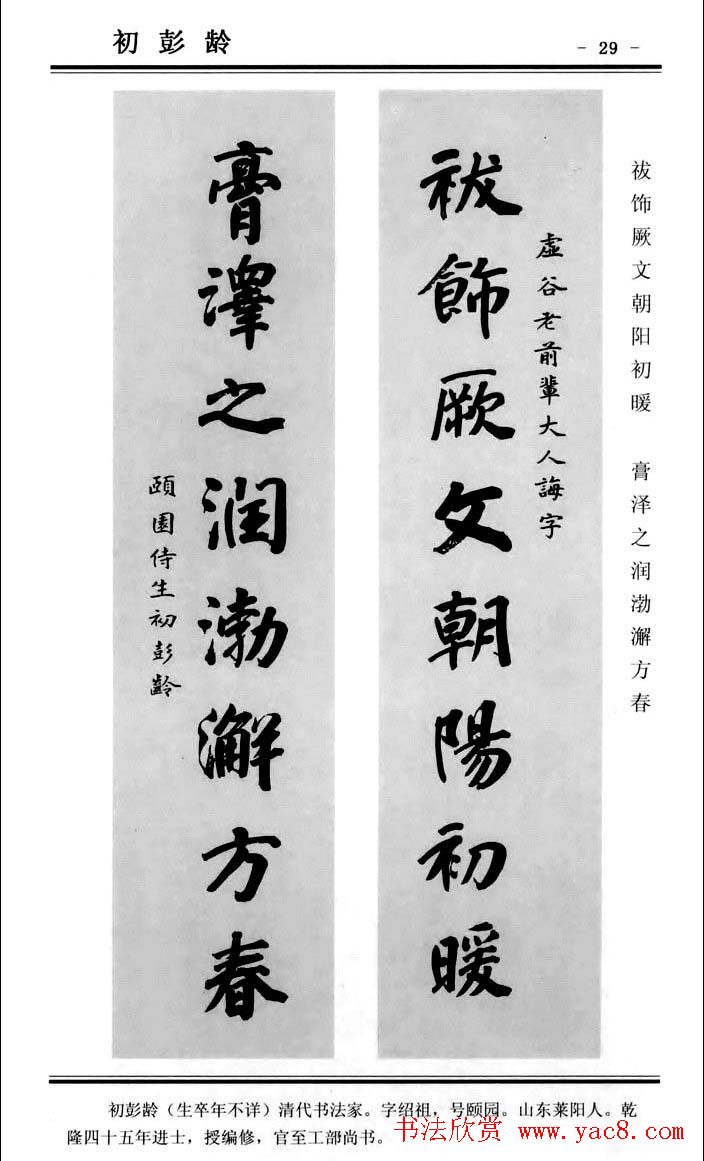 初彭龄
- 29 -
祓饰厥文朝阳初暖 膏泽之润渤澥方春
虚谷老前輩大人誨字
祓飾厥文朝陽初暖
膏澤之润渤澥方春
頤園侍生初彭齡
初彭龄（生卒年不详）清代书法家。字绍祖，号颐园。山东莱阳人。乾
隆四十五年进士，授编修，官至工部尚书。
书法欣赏 www.yac8.com